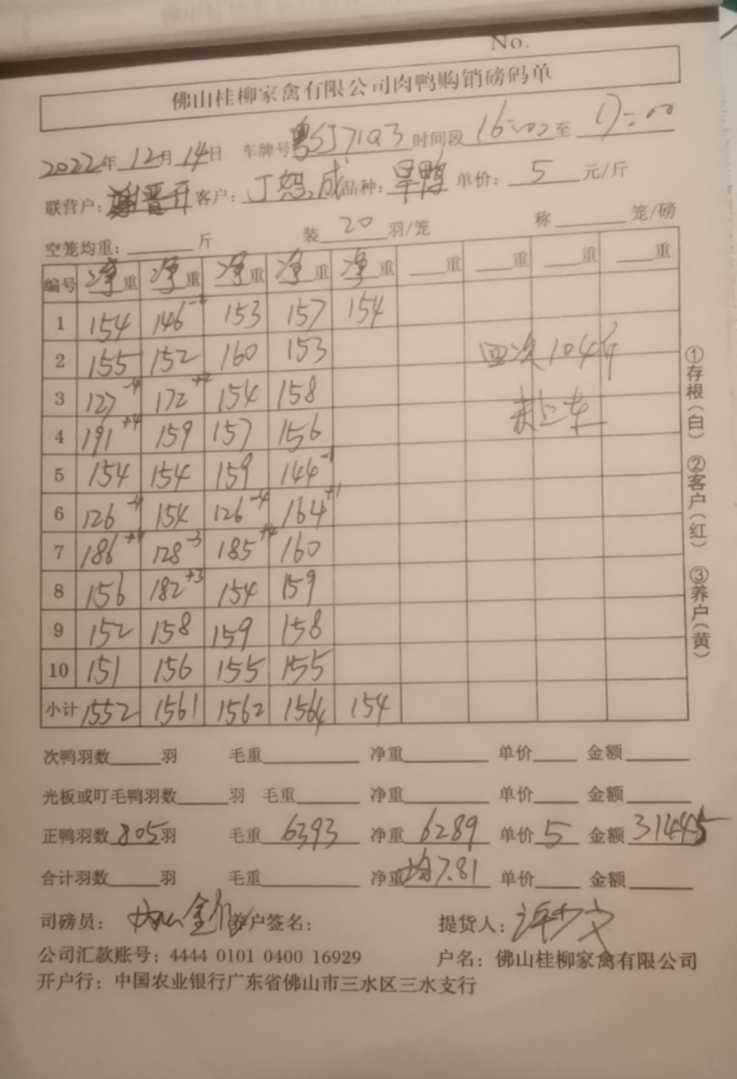 No.
佛山桂柳家禽有限公司肉鸭购销磅码单
2022年 12月 14日 车牌号 粤SJ71Q3 时间段 16:00 至 17:00
联营户: 客户: 丁恕成 品种: 旱鸭 单价: 5 元/斤
空笼均重: 斤 装 20 羽/笼 称 笼/磅
编号 净重 净重 净重 净重 净重 重 重 重 重
1 154 146 153 157 154
2 155 152 160 153 四次104斤
3 127-4 172 154 158
4 191+4 159 157 156
5 154 154 159 144-1
6 126-4 154 126-4 164+1
7 186+4 128-3 185+4 160
8 156 182+3 154 159
9 152 158 159 158
10 151 156 155 155
小计 1552 1561 1562 1564 154
①存根(白) ②客户(红) ③养户(黄)
次鸭羽数 羽 毛重 净重 单价 金额
光板或盯毛鸭羽数 羽 毛重 净重 单价 金额
正鸭羽数 805羽 毛重 6393 净重 6289 单价 5 金额 31445
合计羽数 羽 毛重 净重 均7.81 单价 金额
司磅员: 养户签名: 提货人:
公司汇款账号: 4444 0101 0400 16929 户名: 佛山桂柳家禽有限公司
开户行: 中国农业银行广东省佛山市三水区三水支行